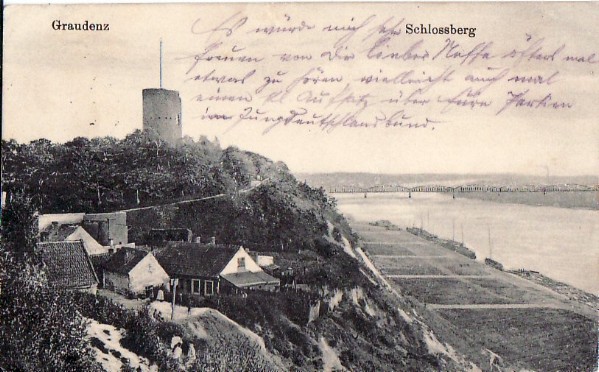 Graudenz
Schlossberg
Es würde mich sehr
freuen von Dir lieber Neffe öfters mal
etwas zu hören, vielleicht auch mal
einen kl. Aufsatz über Eure
im Jungdeutschlandbund.